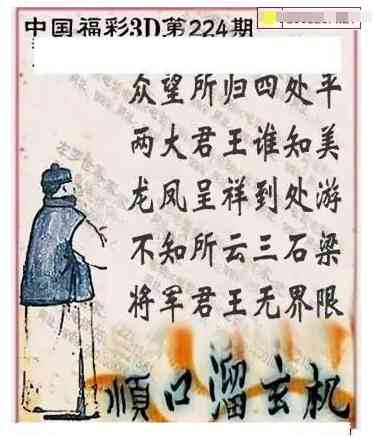 中国福彩3D第224期
众望所归四处平
两大君王谁知美
龙凤呈祥到处游
不知所云三石梁
将军君王无界限
顺口溜玄机